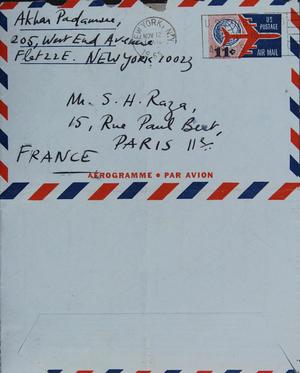 Akbar Padamsee,
205, West End Avenue
Flat 22E. NEW YORK 10023
NEW YORK, N.Y.
NOV 12
US POSTAGE
11c
AIR MAIL
Mr. S. H. Raza,
15, Rue Paul Bert,
PARIS 11e
FRANCE
AÉROGRAMME • PAR AVION